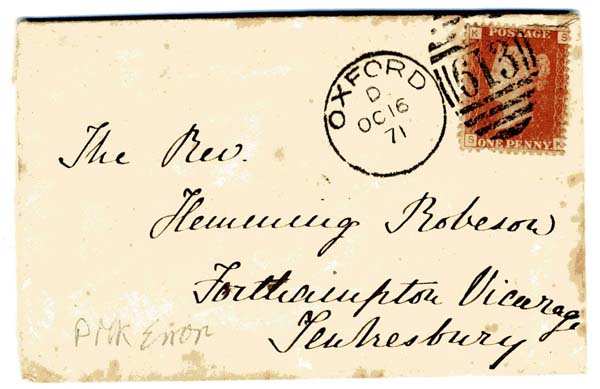 POSTAGE
K S
613
S K
ONE PENNY
OXFORD
D
OC 16
71
The Rev.
Hemming Robeson
Forthampton Vicarage
Tewkesbury
PMK Error